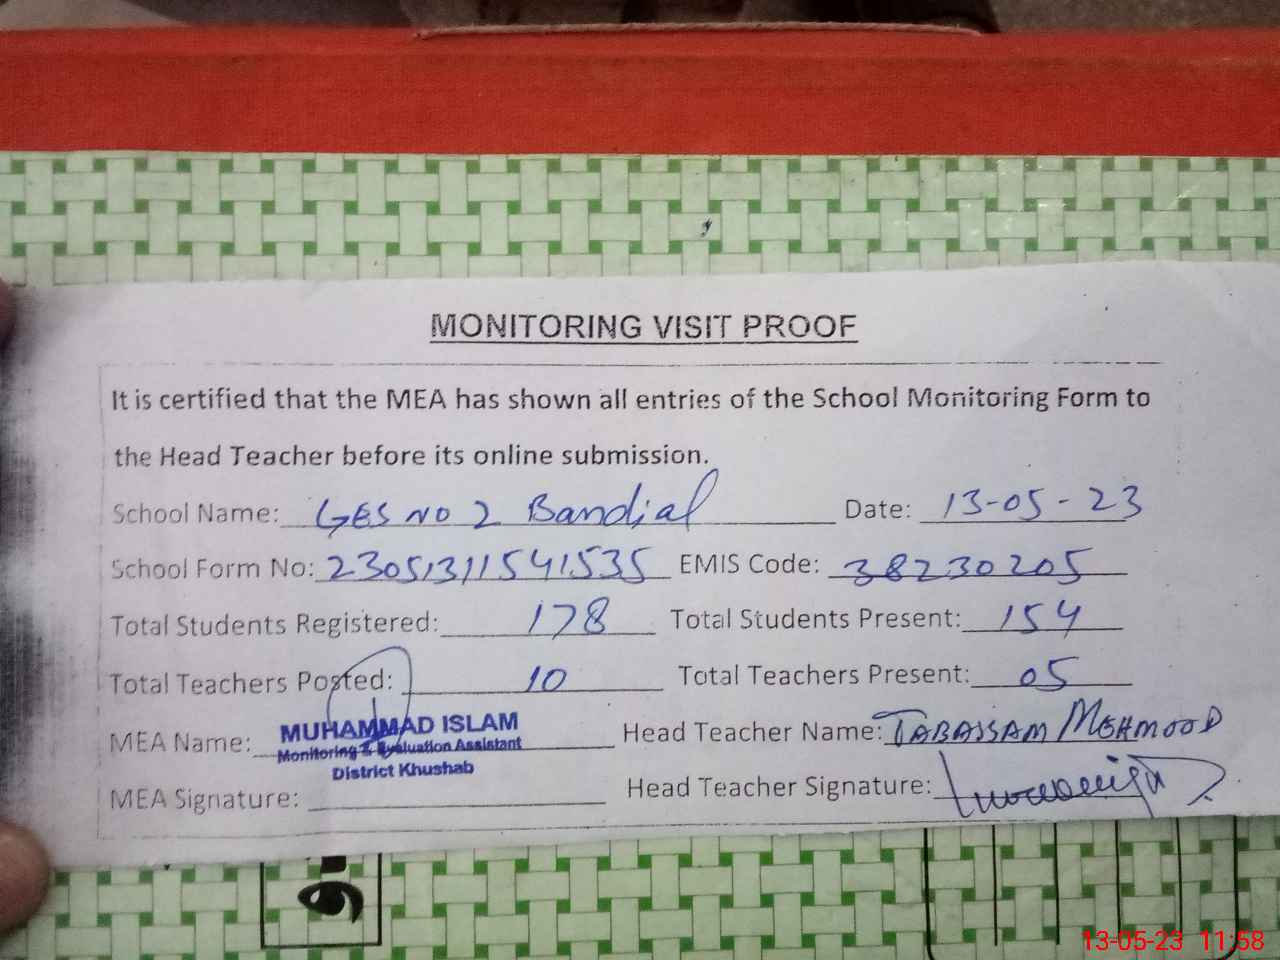 MONITORING VISIT PROOF
It is certified that the MEA has shown all entries of the School Monitoring Form to
the Head Teacher before its online submission.
School Name: GES NO 2 Bandial Date: 13-05-23
School Form No: 23051311541535 EMIS Code: 38230205
Total Students Registered: 178 Total Students Present: 154
Total Teachers Posted: 10 Total Teachers Present: 05
MEA Name: MUHAMMAD ISLAM Head Teacher Name: TABASSAM MEHMOOD
Monitoring & Evaluation Assistant
District Khushab
MEA Signature: Head Teacher Signature:
13-05-23 11:58